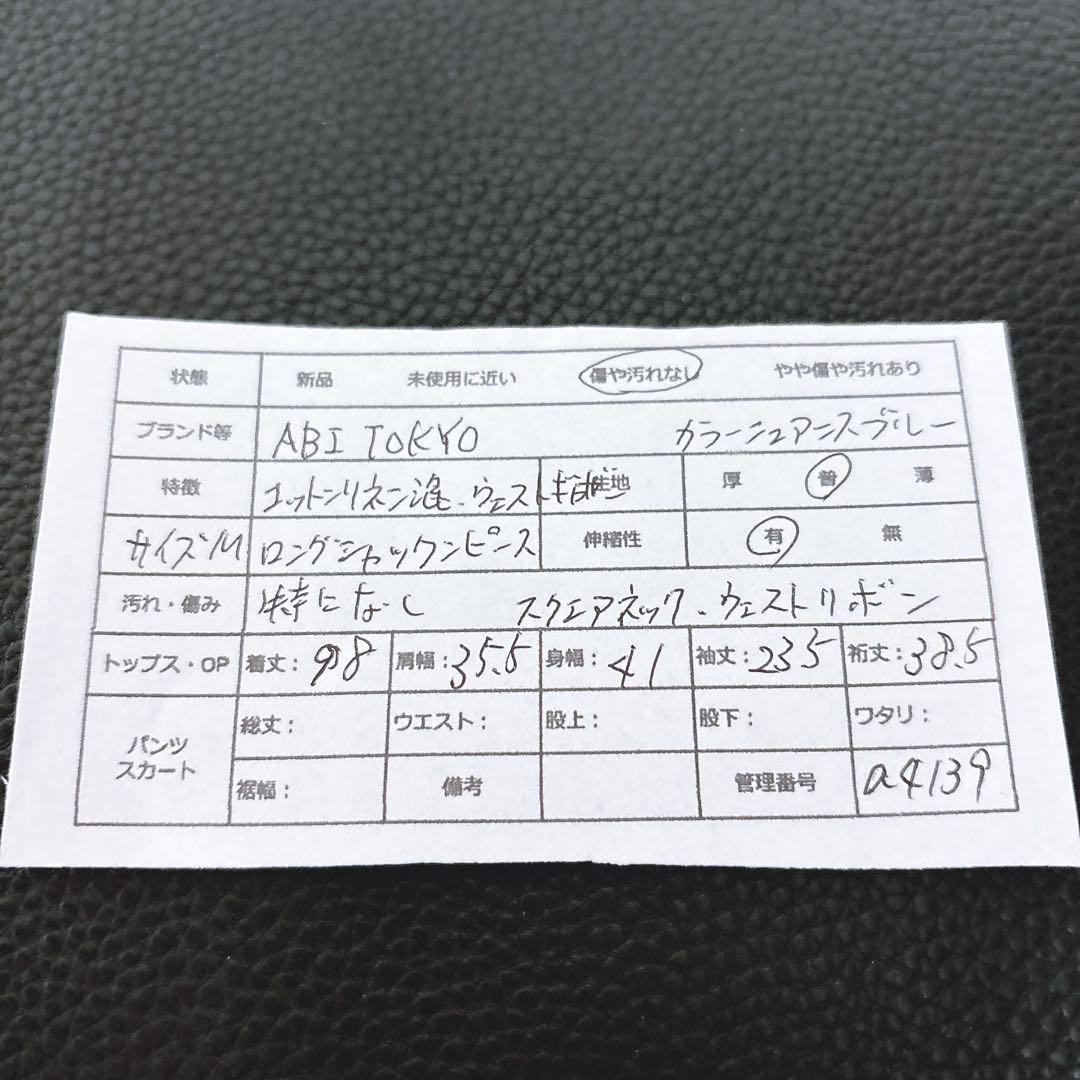 状態 新品 未使用に近い 傷や汚れなし やや傷や汚れあり
ブランド等 ABI TOKYO カラーシュアンスブルー
特徴 コットンリネン混、ウェスト 生地 厚 普 薄
サイズM ロングシャツワンピース 伸縮性 有 無
汚れ・傷み 特になし スクエアネック、ウェストリボン
トップス・OP 着丈:98 肩幅:35.5 身幅:41 袖丈:23.5 裄丈:38.5
パンツ スカート 総丈: ウエスト: 股上: 股下: ワタリ:
裾幅: 備考 管理番号 a4139